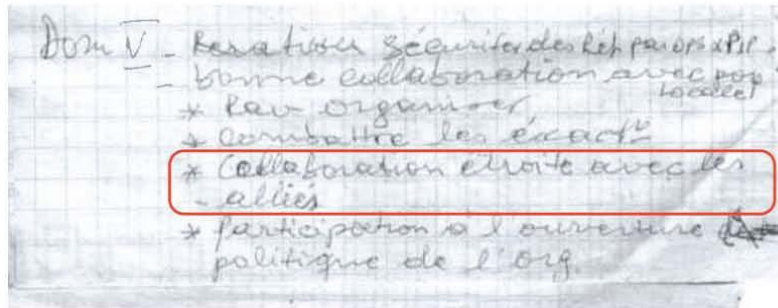 Dom V - Sécuriser des Réf par ops
- bonne collaboration avec pop
locales
* Rav organiser
* Combattre les éxact°
* Collaboration étroite avec les
- alliés
* participation à l'ouverture
politique de l'org.